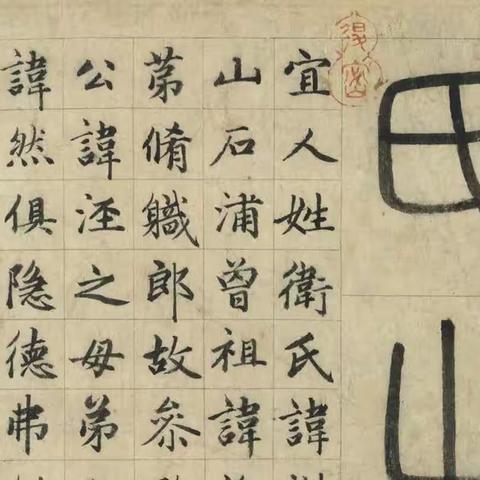 宜人姓衛氏諱
山石浦曾祖諱
苐脩軄郎故叅
公諱涇之母弟
諱然俱隐德弗